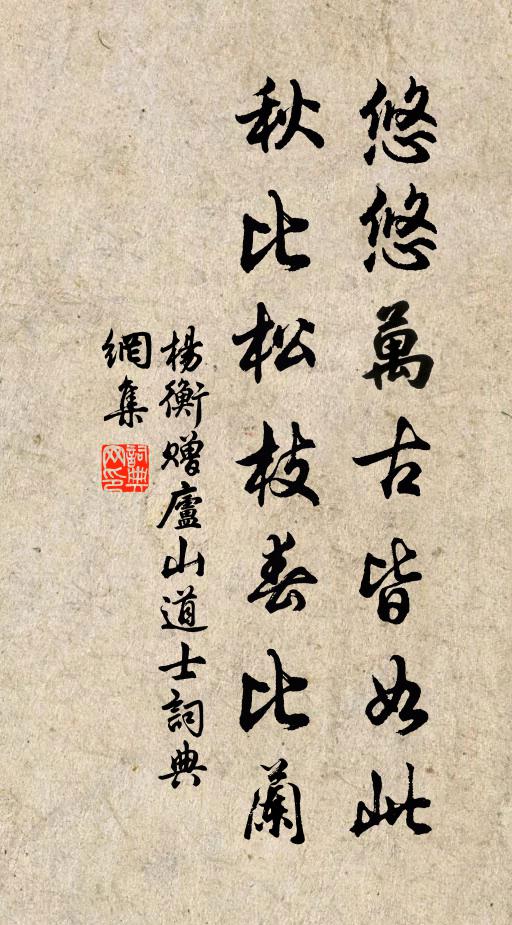 悠悠萬古皆如此
秋比松枝春比蘭
楊衡贈廬山道士詞典
網集
詞典
网印